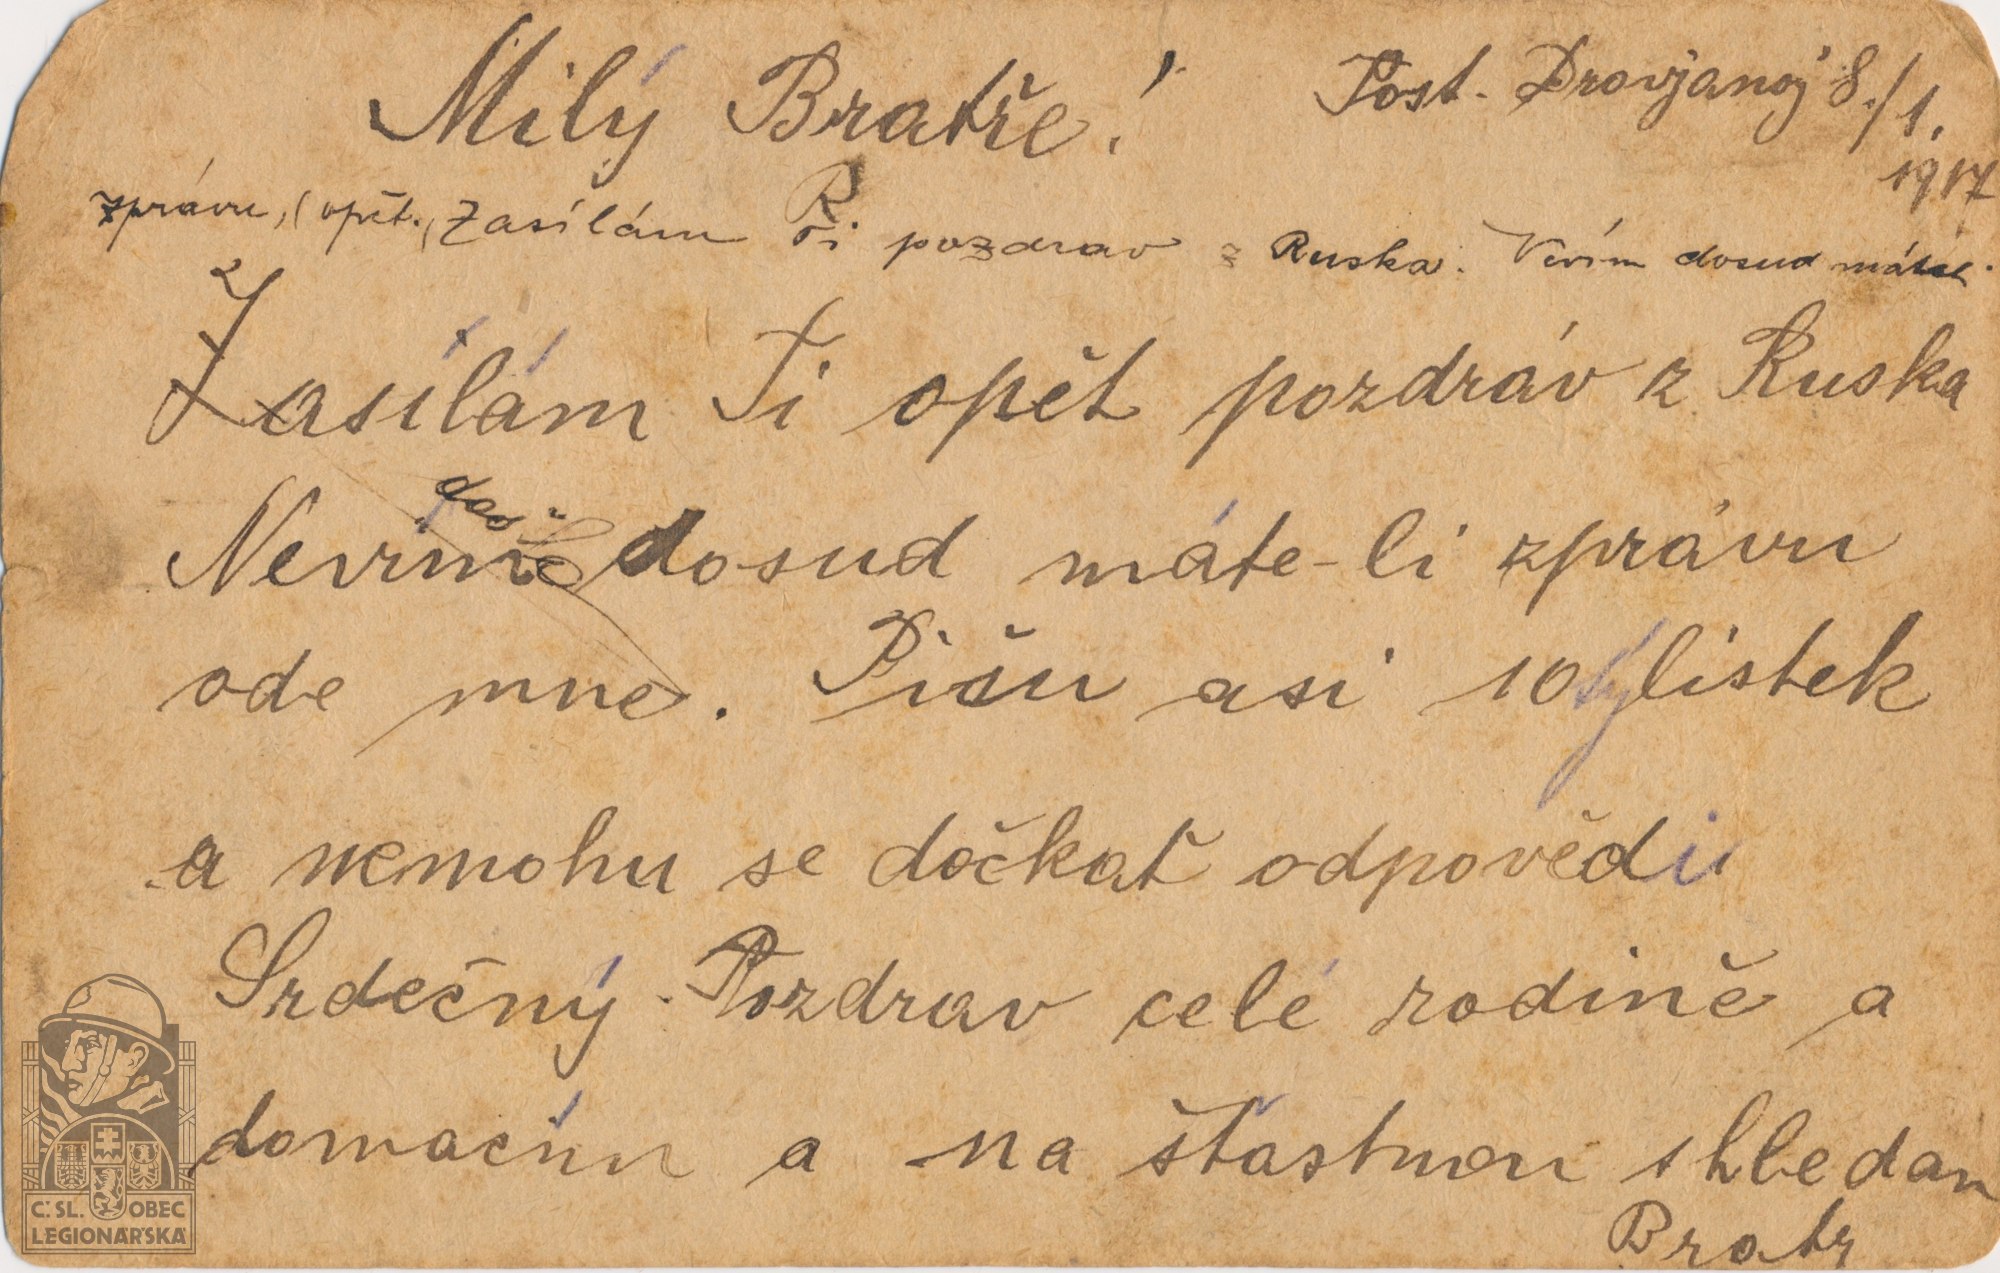 Milý Bratře!
Post. Drovjanoj 8./1.
1917
zprávu, (opět., Zasílám Ti pozdrav z Ruska. Vím dosud máte
Zasílám Ti opět pozdráv z Ruska
Nevím dosud máte-li zprávu
ode mne. Píšu asi 10tý lístek
a nemohu se dočkat odpovědi
Srdečný Pozdrav celé rodině a
domacím a na šťastnou shledan
Bratr
Č. SL. OBEC
LEGIONÁŘSKÁ